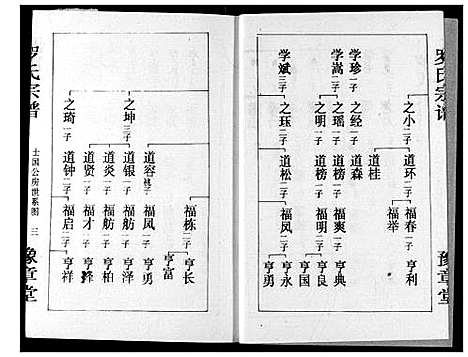 罗氏宗谱
豫章堂
之小二子
道环二子
道桂
福春一子
福举
亨利
学珍一子
之经一子
道森
学嵩二子
之瑶一子
道榜一子
福爽一子
亨典
之明一子
道榜二子
福明二子
亨良
亨国
学斌三子
之珏二子
道松一子
福凤二子
亨永
亨勇
罗氏宗谱
士国公房世系图 三
豫章堂
福栋二子
亨长
亨富
道容
福凤一子
亨勇
之坤三子
道银一子
福舫一子
亨泽
道炎一子
福舫一子
亨柏
道贤一子
福才一子
之琦一子
道钟一子
福启二子
亨祥